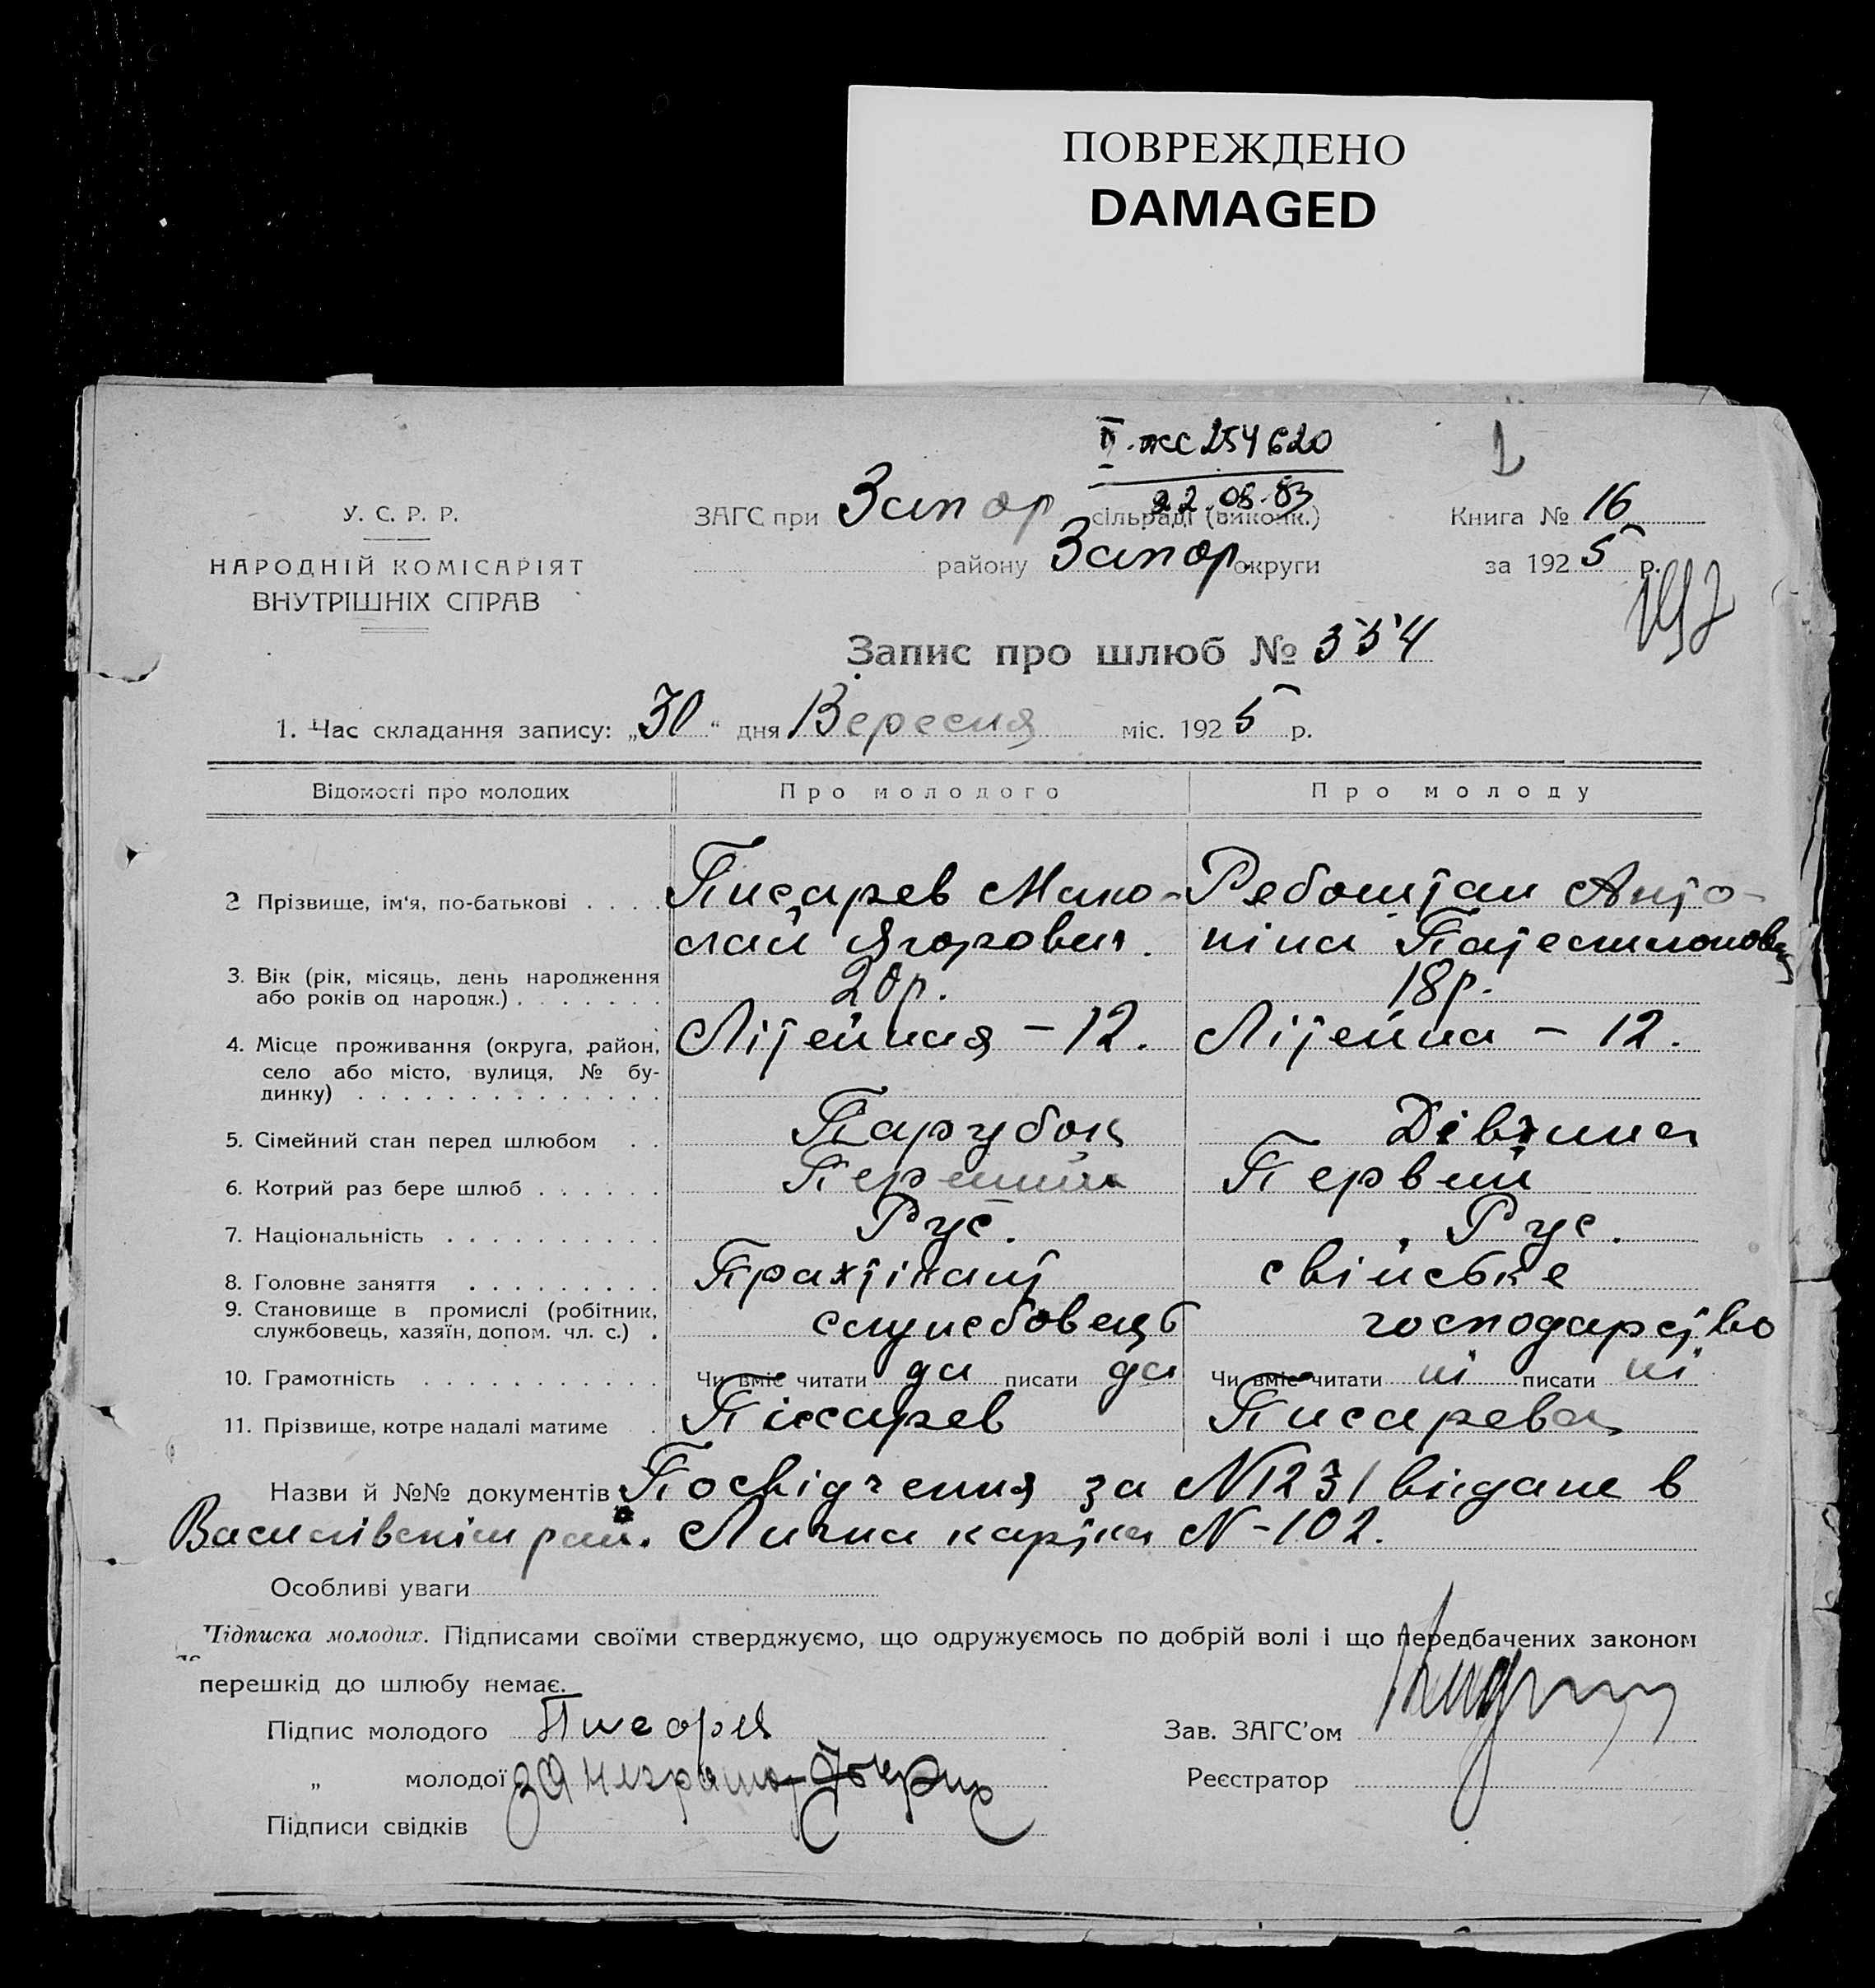 ПОВРЕЖДЕНО
DAMAGED
ІІ-жс 254620
22.08.83
1
У. С. Р. Р.
НАРОДНІЙ КОМІСАРІЯТ
ВНУТРІШНІХ СПРАВ
ЗАГС при Запор сільраді (виконк.)
району Запор. округи
Книга № 16
за 1925 р.
Запис про шлюб № 554
1. Час складання запису: „30“ дня Вересня міс. 1925 р.
Відомості про молодих Про молодого Про молоду
2 Прізвище, ім'я, по-батькові . . . . Писарев Мико- Ребоштан Анто-
лай Ягорович. ніна
3. Вік (рік, місяць, день народження
або років од народж.) . . . . . . . 20р. 18р.
4. Місце проживання (округа, район, Літейная – 12. Літейна – 12.
село або місто, вулиця, № бу-
динку) . . . . . . . . . . . . . .
5. Сімейний стан перед шлюбом . . Парубок Дівчина
6. Котрий раз бере шлюб . . . . . . Перший Первий
7. Національність . . . . . . . . . . Рус. Рус.
8. Головне заняття . . . . . . . . . Прахтікант свійське
9. Становище в промислі (робітник,
службовець, хазяїн, допом. чл. с.) . службовець господарство
10. Грамотність . . . . . . . . . . . Чи вміє читати да писати да Чи вміє читати ні писати ні
11. Прізвище, котре надалі матиме . Пісарев Писарева
Назви й №№ документів Посвідчення за №1231 видане в
Василівскім рай. Лична картка N-102.
Особливі уваги
Підписка молодих. Підписами своїми стверджуємо, що одружуємось по добрій волі і що передбачених законом
перешкід до шлюбу немає.
Підпис молодого Писарев
Зав. ЗАГС'ом
„ молодої за неграмот
Реєстратор
Підписи свідків